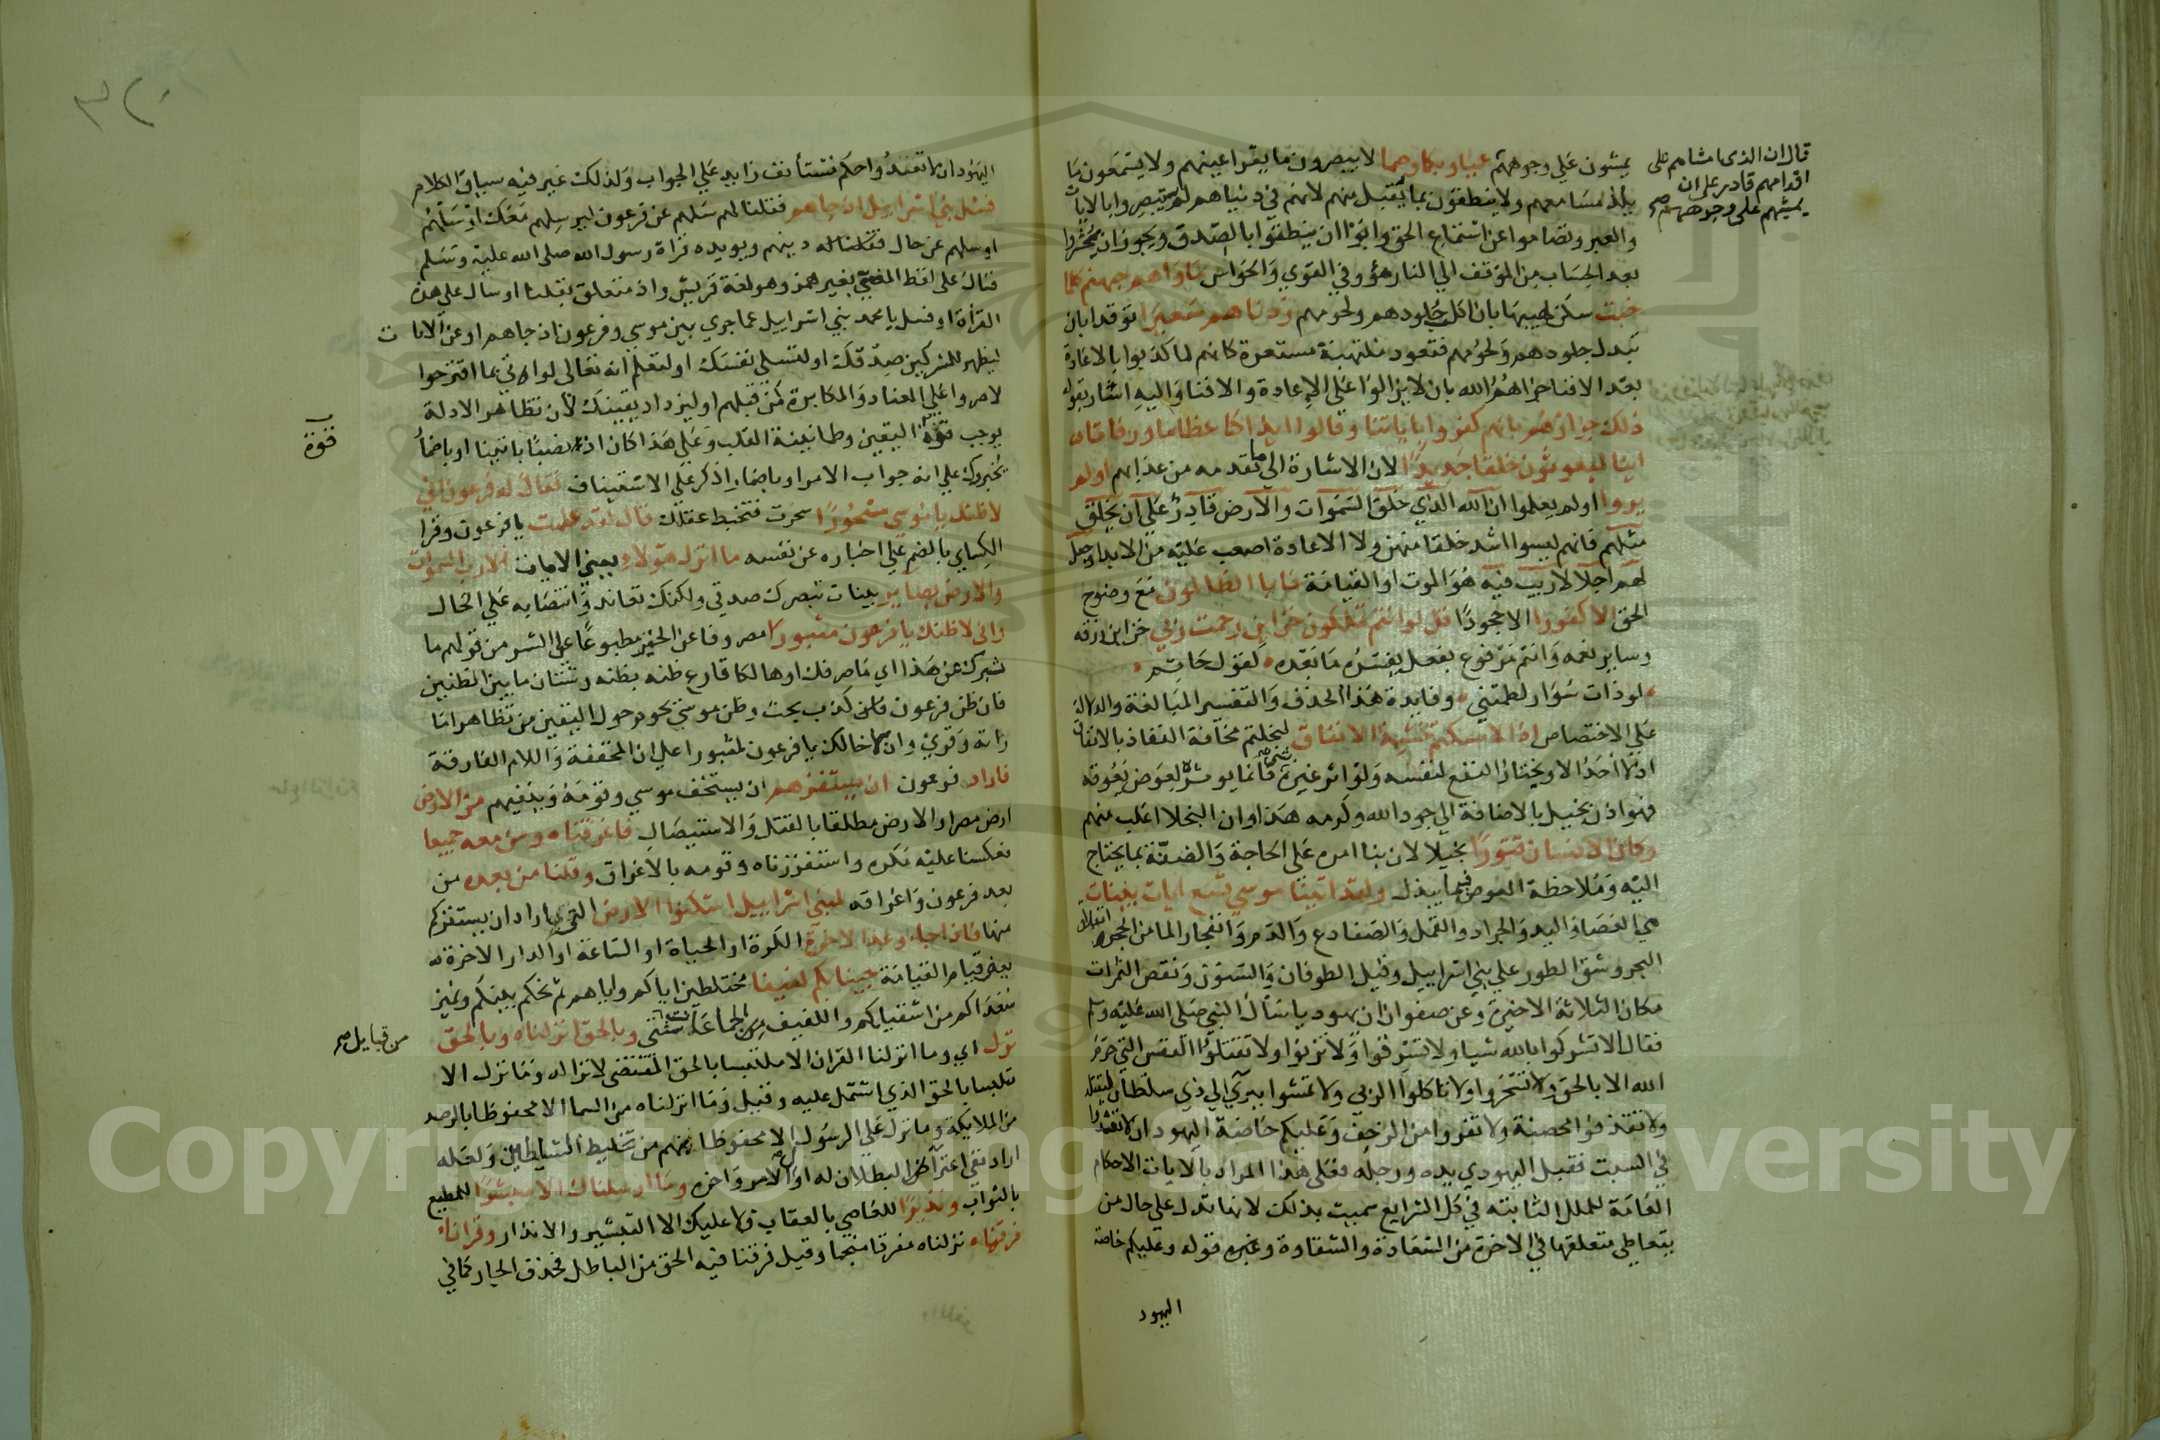 قال ان الذي امشاهم على
اقدامهم قادر على ان
يمشيهم على وجوههم صح
يمشون على وجوههم عميا وبكما وصما لا يبصرون ما يقر اعينهم ولا يسمعون ما
يلذ مسامعهم ولا ينطقون بما يقبل منهم لانهم في دنياهم لم يستبصروا بالايات
والعبر وتصاموا عن استماع الحق وابوا ان ينطقوا بالصدق ويجوز ان يحشروا
بعد الحساب من الموقف الي النار مؤوفي القوي والحواس ماواهم جهنم كلما
خبت سكن لهيبها بان اكل جلودهم ولحومهم زدناهم سعيرا توقدا بان
نبدل جلودهم ولحومهم فتعود ملتهبة مستعرة كانهم لما كذبوا بالاعادة
بعد الافنا جزاهم الله بان لا يزالوا على الاعادة والافنا واليه اشار بقوله
ذلك جزاؤهم بانهم كفروا باياتنا وقالوا ايذا كنا عظاما ورفاتا
اينا لمبعوثون خلقا جديدا لان الاشارة الي ما تقدمه من عذابهم اولم
يروا اولم يعلموا ان الله الذي خلق السموات والارض قادر علي ان يخلق
مثلهم فانهم ليسوا اشد خلقا منهن ولا الاعادة اصعب عليه من الابدا وجعل
لهم اجلا لا ريب فيه هو الموت او القيامة فابا الظالمون مع وضوح
الحق الا كفورا الا جحودا قل لو انتم تملكون خزاين رحمت ربي خزاين رزقه
وساير نعمه وانتم مرفوع بفعل يفسره ما بعده لقول حاتم
لو ذات سوار لطمتني وفايدة هذا الحذف والتفسير المبالغة والدلالة
علي الاختصاص اذا لامسكتم خشية الانفاق لبخلتم مخافة النفاذ بالانفاق
اذ لا احد الا ويختار النفع لنفسه ولو اثر غيره بشي فانما يوثره لعوض يفوقه
فهو اذن بخيل بالاضافة الي جود الله وكرمه هذا وان البخلا اغلب منهم
وكان الانسان قتورا بخيلا لان بنا امره على الحاجة والضنة بما يحتاج
اليه وملاحظة العوض فيما يبذل ولقد اتينا موسي تسع ايات بينات
هي العصا واليد والجراد والقمل والضفادع والدم وانفجار الما من الحجر وانفلاق
البحر وشق الطور علي بني اسراييل وقيل الطوفان والسنون ونقص الثمرات
مكان الثلاثة الاخيرة وعن صفوان ان يهوديا سأل النبي صلى الله عليه وسلم
فقال الا تشركوا بالله شيا ولا تسرقوا ولا تزنوا ولا تقتلوا النفس التي حرم
الله الا بالحق ولا تسحروا ولا تاكلوا الربي ولا تمشوا ببري الي ذي سلطان ليقتله
ولا تقذفوا محصنة ولا تفروا من الزحف وعليكم خاصة اليهود ان لا تعتدوا
في السبت فقبل اليهودي يده ورجله فعلى هذا المراد بالايات الاحكام
العامة للملل الثابته في كل الشرايع سميت بذلك لانها تدل علي حال من
يتعاطي متعلقها في الاخرة من السعادة والشقاوة وغيره قوله وعليكم خاصة
اليهود
اليهود ان لا تعتدوا حكم مستأنف زايد علي الجواب ولذلك غير فيه سياق الكلام
فسل بني اسراييل اذ جاهم فقلنا له سلهم عن فرعون ليرسلهم معك او سلهم
او سلهم عن حال دينهم ويويده قراة رسول الله صلى الله عليه وسلم
فسال على لفظ المضي بغير همز وهو لغة قريش واذ متعلق بقلنا او سال علي هذه
القراة او فسل يا محمد بني اسراييل عما جري بين موسي وفرعون اذ جاهم او عن الايات
ليظهر للمشركين صدقك او لتتسلي نفسك او لتعلم انه تعالى لو اتي بما اقترحوا
لاصروا علي العناد والمكابرة كمن قبلهم او ليزداد يقينك لان تظاهر الادلة
يوجب قوة اليقين وطمانينة القلب وعلي هذا كان اذ نصبا باتينا او باضمار
قوة
يخبروك علي انه جواب الامر او باضمار اذكر علي الاستيناف فقال له فرعون اني
لاظنك يا موسي مسحورا سحرت فتخبط عقلك قال لقد علمت يا فرعون وقرا
الكساي بالضم علي اخباره عن نفسه ما انزل هولاء يعني الايات الا رب السموات
والارض بصاير بينات تبصرك صدقي ولكنك تعاند وانتصابه علي الحال
واني لاظنك يا فرعون مثبورا مصروفا عن الخير مطبوعا علي الشر من قولهم ما
ثبرك عن هذا اي ما صرفك او هالكا قارع ظنه بظنه وشتان ما بين الظنين
فان ظن فرعون كذب بحت وظن موسي يحوم حول اليقين من تظاهر امارا
راته وقري وان اخالك يا فرعون لمثبورا علي ان المخففة واللام الفارقة
فاراد فرعون ان يستفزهم ان يستخف موسي وقومه وينفيهم من الارض
ارض مصر او الارض مطلقا بالقتل والاستيصال فاغرقناه ومن معه جميعا
فعكسنا عليه مكره واستفززناه وقومه بالاغراق وقلنا من بعده من
بعد فرعون واغراقه لبني اسراييل اسكنوا الارض التي اراد ان يستفزكم
منها فاذا جاء وعد الاخرة الكرة او الحياة او الساعة او الدار الاخرة
يعني قيام القيامة جينا بكم لفيفا مختلطين اياكم واياهم ثم نحكم بينكم ونميز
سعداكم من اشقياكم واللفيف الجماعات شتي وبالحق انزلناه وبالحق
من قبايل صح
نزل اي وما انزلنا القران الا ملتبسا بالحق المقتضي لانزاله وما نزل الا
ملتبسا بالحق الذي اشتمل عليه وقيل وما انزلناه من السما الا محفوظا بالرصد
من الملايكة وما نزل علي الرسول الا محفوظا بهم من تخليط الشياطين ولعله
اراد نفي اعتراء البطلان له اول الامر واخره وما ارسلناك الا مبشرا للمطيع
بالثواب ونذيرا للعاصي بالعقاب فلا عليك الا التبشير والانذار وقرانا
فرقناه نزلناه مفرقا منجما وقيل فرقنا فيه الحق من الباطل فحذف الجار كما في
Copyright © King Saud University